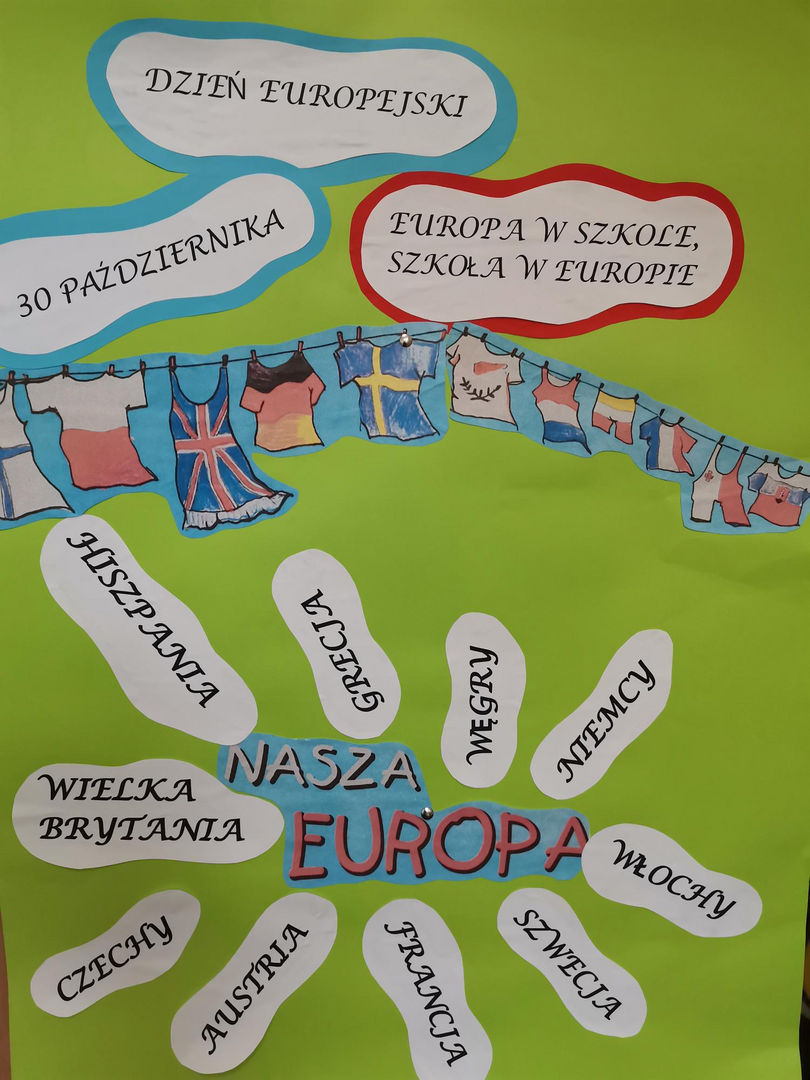 DZIEŃ EUROPEJSKI
30 PAŹDZIERNIKA
EUROPA W SZKOLE,
SZKOŁA W EUROPIE
HISZPANIA
GRECJA
WĘGRY
NIEMCY
NASZA
EUROPA
WIELKA
BRYTANIA
WŁOCHY
CZECHY
AUSTRIA
FRANCJA
SZWECJA